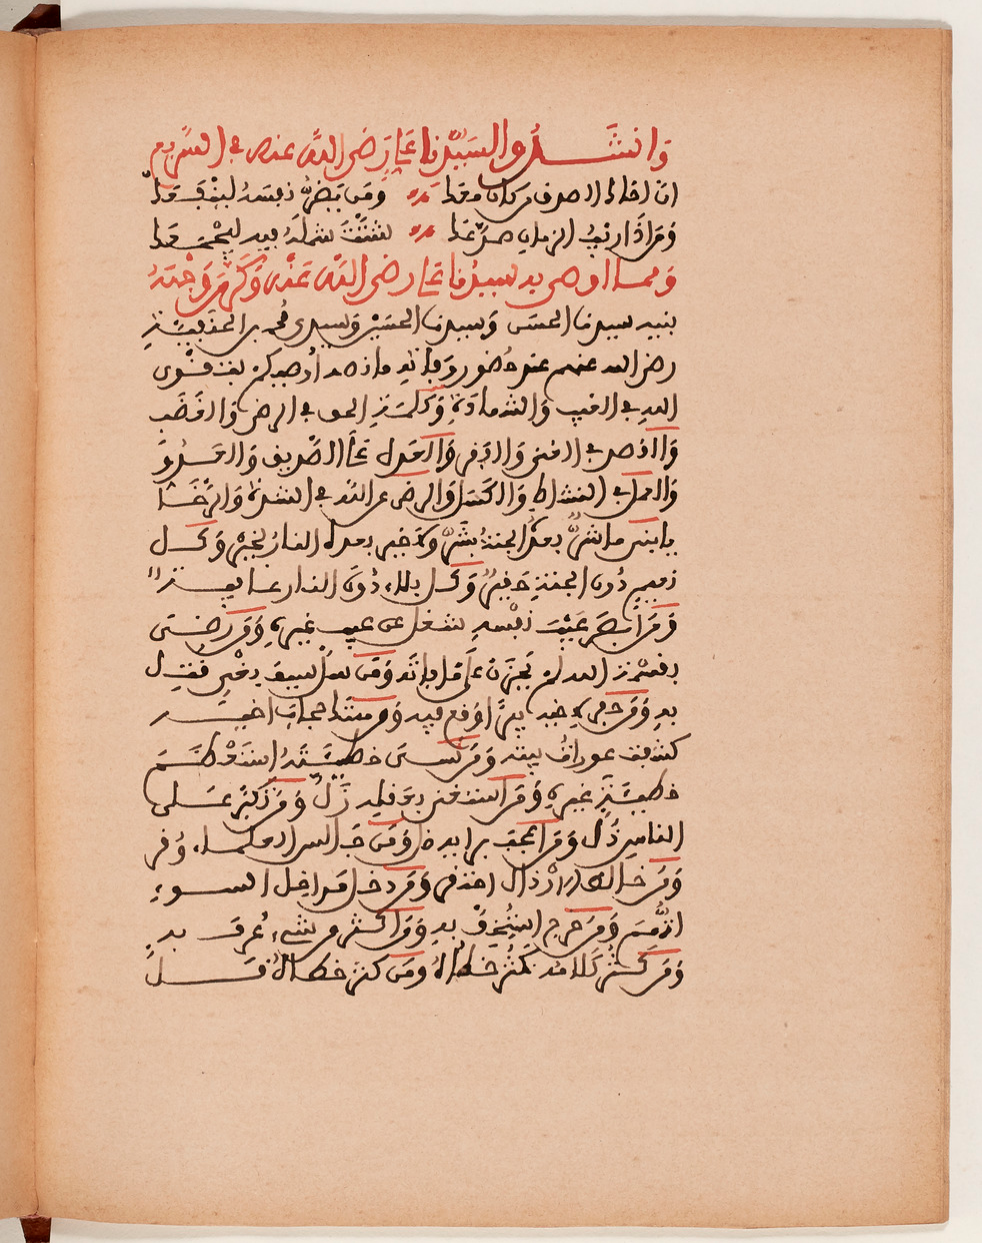 وَانشَدُوا لسَيّدِنا عَلي رَضى اللهُ عنه في السّريع
ان اخاك الصدق من كان معك ومَن يَضرّ نفسه لينفعك
وَمَن اذَا رَيْبُ الزمان صدعك شتَّتَ شمله فيه ليجمعك
وَمما اوصى به سيدُنا عَلي رضى اللهُ عَنْهُ وَكَرَّمَ وَجْهَهُ
بنيه سيدنا الحسَن وَسيدنا الحسَيْن وَسيدى محمد بن الحنفيّةِ
رضى الله عنهم عند حُضور وَفاتِهِ ما نصه أُوصيكم بتقوى
اللهِ في الغيب وَالشهادةِ وَكلمةِ الحق في الرضى وَالغضَب
وَالقصد في الغنى وَالفقر وَالعَدل عَلَى الصَّديق وَالعَدُوِّ
وَالعمل في النشاط وَالكسَل وَالرضى عن الله في الشدةِ وَالرَّخَـا
يا بنى ما شرٌّ بعدَهُ الجنةُ بشَرٍّ وَلا خير بعده النارُ بخيرٍ وَكـل
نعيم دُون الجنةِ حَقيرٌ وَكل بلاء دُونَ النار عافيـةٌ
وَمَن ابصَرَ عَيْبَ نفْسهِ شغل عن عيب غيرهِ وَمَن رضـى
بقسْمةِ الله لم يَحْزَنْ عَلَى ما فاتَه وَمَن سلّ سيف بغْيٍ قتِـل
بهِ وَمَن حفر لاخيه بيرًا وقع فيه وَمن هتك حجابَ اخيـه
كشفت عوراتُ بيته وَمَن نسـى خطيئَتَهُ استَعْظَـمَ
خطيئةَ غيرهِ وَمَن استغنى بعقله زَلَّ وَمَن تكبّر عـلى
الناس ذُلَّ وَمَن اعجب برايه ضل وَمَن جالس العلماء وُقر
وَمَن خالط الارْذال احتقر وَمَن دخل مداخل السـوءِ
اتُّهِمَ وَمَن مزح استُخِفَّ بهِ وَمَن اكثر من شيء عُرف بـهِ
وَمَن كثُر كلامه كَثُرَ خطاؤهُ ومَن كثر خطاؤهُ قَـلَّ